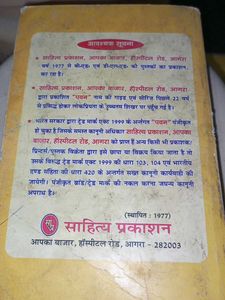 आवश्यक सूचना
साहित्य प्रकाशन, आपका बाजार, हॉस्पीटल रोड, आगरा
वर्ष 1977 से बी०एड० एवं डी०एल०एड० की पुस्तकों का प्रकाशन
कर रहा है।
साहित्य प्रकाशन, आपका बाजार, हॉस्पीटल रोड, आगरा
द्वारा प्रकाशित "पवन" नाम की गाइड एवं सीरिज पिछले 22 वर्ष
से प्रसिद्ध होकर लोकप्रियता के उच्चतम शिखर पर पहुँच गई है।
भारत सरकार द्वारा ट्रेड मार्क एक्ट 1999 के अर्न्तगत "पवन" पंजीकृत
हो चुका है जिसके समस्त कानूनी अधिकार साहित्य प्रकाशन, आपका
बाजार, हॉस्पीटल रोड, आगरा को प्राप्त हैं अन्य किसी भी प्रकाशक/
प्रिंटर्स/पुस्तक विक्रेता द्वारा इसे छापा या विक्रय किया जाता है तो
उसके विरुद्ध ट्रेड मार्क एक्ट 1999 की धारा 103, 104 एवं भारतीय
दण्ड संहिता की धारा 420 के अर्न्तगत सख्त कानूनी कार्यवाही की
जायेगी। पंजीकृत ब्रांड/ट्रेड मार्क की नकल करना जघन्य कानूनी
अपराध है।
(स्थापित : 1977)
साहित्य प्रकाशन
आपका बाजार, हॉस्पीटल रोड, आगरा - 282003